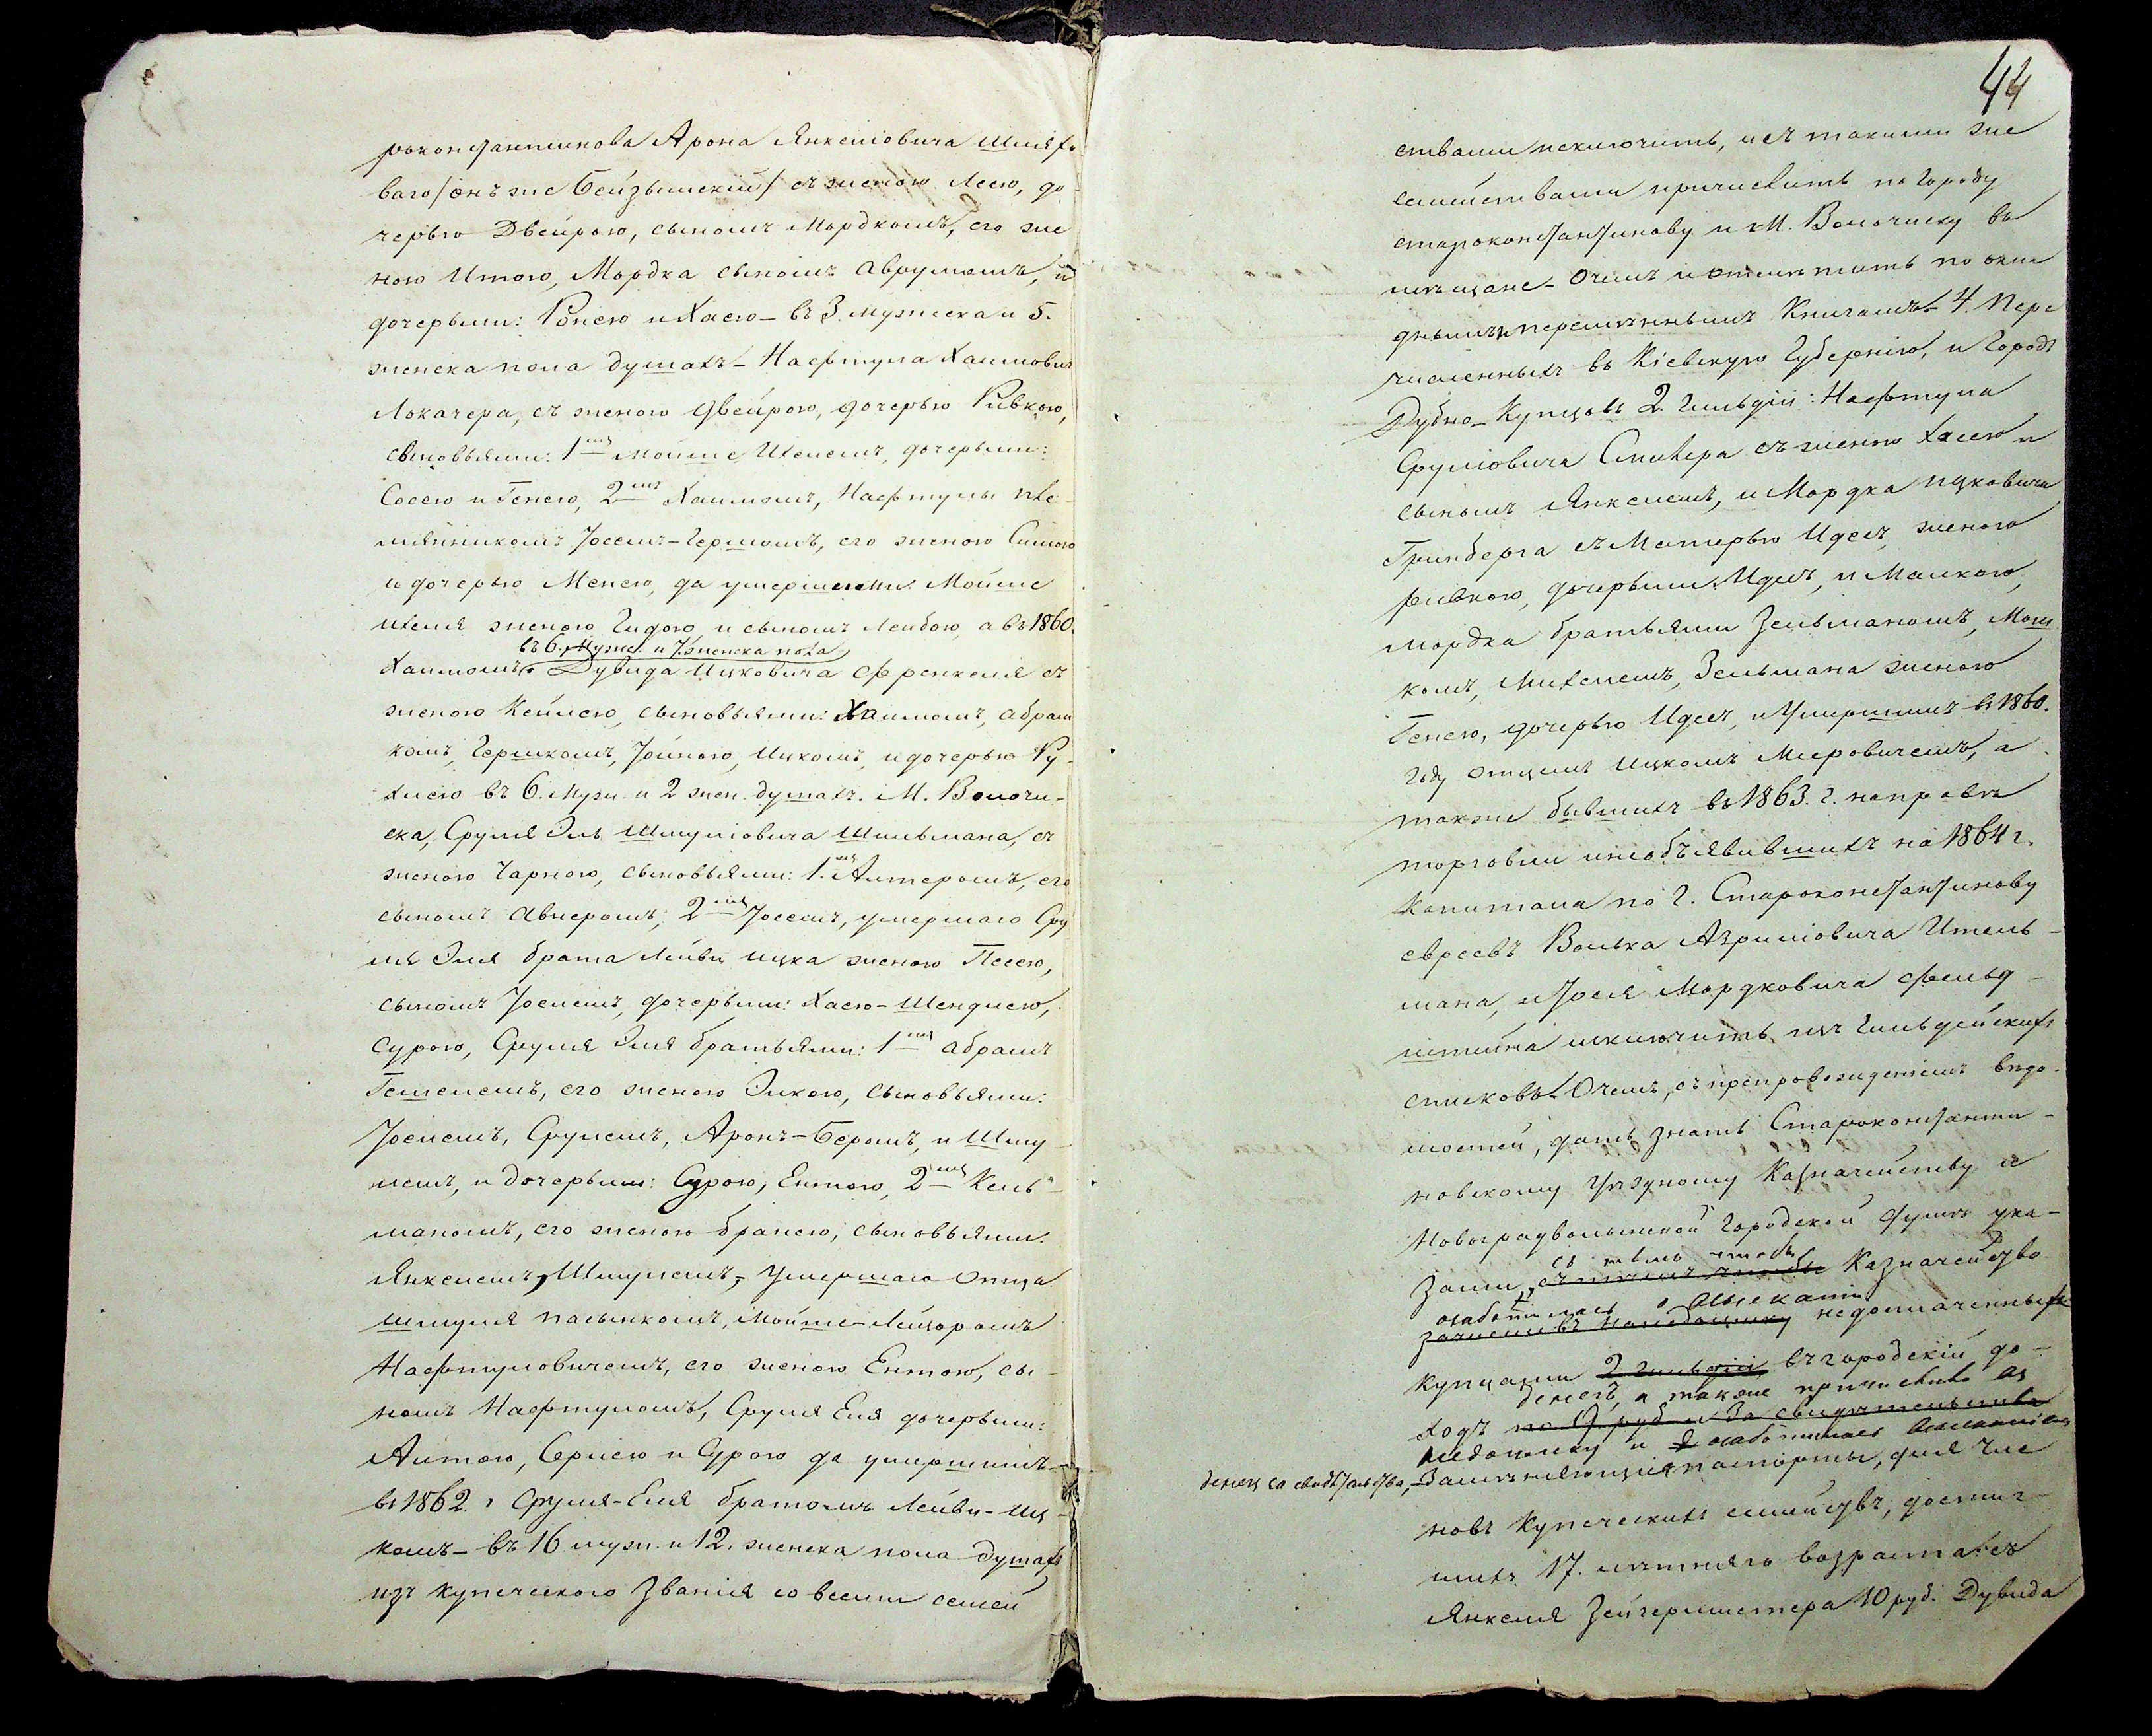 роконстантинова Арона Янкеліовича Шмія
ваго /онъ же Бейзымскій/ съ женою Леею, до-
черью Двейрою, сыномъ Мордкомъ, его же
ною Итою, Мордка сыномъ Аврумомъ, и
дочерьми: Ронею и Хаею – въ 3. мужеска и 5.
женска пола душахъ – Нафтула Хаимовича
Локачера, съ женою Двейрою, дочерью Ривкою,
сыновьями: 1мъ Мойше Ихелемъ, дочерьми:
Сосею и Генею, 2мъ Хаимомъ, Нафтулы пле-
мянникомъ Іосемъ-Гершомъ, его женою Симою
и дочерью Менею, да умершими: Мойше
Ихеля женою Гидою и сыномъ Лейбою, а въ 1860.
въ 6. Муже. и 7. женска пола
Хаимомъ. Дувида Ицковича Френкеля съ
женою Кейлею, сыновьями: Хаимомъ, Абрам
комъ, Гершкомъ, Іойною, Ицкомъ, и дочерью Ру-
хлею въ 6. Муж. и 2 жен. душахъ. М. Волочи-
ска, Сруля Эль Шмуліовича Шильмана, съ
женою Чарною, сыновьями: 1.мъ Алтеромъ, его
сыномъ Авнеромъ; 2мъ Іосемъ, умершаго Сру
ля Эля брата Лейви Ицка женою Песею,
сыномъ Іоселемъ, дочерьми: Хаею-Шендлею,
Сурою, Сруля Эля братьями: 1мъ Абрамъ
Гешелемъ, его женою Элкою, сыновьями:
Іоселемъ, Срулемъ, Аронъ-Беромъ, и Шму-
лемъ, и дочерьми: Сурою, Ентою, 2мъ Кель-
маномъ, его женою Бранею, сыновьями:
Янкелемъ, Шмулемъ, Умершаго Отца
Шмуля пасынкомъ, Мойше-Лейзоромъ
Нафтуловичемъ, его женою Ентою, сы-
номъ Нафтуломъ, Сруля Еля дочерьми:
Алтою, Серлею и Сурою да умершимъ
въ 1862 г Сруля-Еля братомъ Лейви-Иц-
комъ – въ 16 муж. и 12. женска пола душахъ
изъ купеческого званія со всеми семей
44
ствами исключить, и съ такими же
семействами причислить по городу
Староконстантинову и М. Волочиску въ
мѣщане – О чемъ и отмѣтить по окла
днымъ и перемѣннымъ Книгамъ. – 4. Пере
численныхъ въ Кіевскую Губернію, и Городъ
Дубно – Купцовъ 2 Гильдіи: Нафтула
Сруліовича Спивера съ женою Хасею и
сыномъ Янкелемъ, и Мордка Ицковича
Гринберга съ Матерью Идесъ, женою
Ривкою, дочерьми: Идесъ, и Малкою,
Мордка братьями Зельманомъ, Мош
комъ, Михелемъ, Зельмана женою
Генею, дочерью Идесъ, и Умершимъ въ 1860.
году отцемъ Ицкомъ Меировичемъ, а
также бывшихъ въ 1863. г. на правѣ
торговли и не объявившихъ на 1864 г.
капитала по г. Староконстантинову
евреевъ Волька Азриліовича Ительь-
мана, и Іоселя Мордковича Фельд-
штейна исключить изъ Гильдейскихъ
списковъ. О чемъ, съ препровожденіемъ вѣдо-
мостей, дать знать Староконстанти-
новскому Уѣздному Казначейству и
Новоградволынской Городской Думѣ ука-
съ тѣмъ чтобы
зами, съ тѣмъ чтобы Казначейство
озаботилось о взысканіи
зачислить недоимку недоплаченныхъ
купцами 2 гильдіи въ городскій до-
денегъ, а также причислило въ
ходъ по 9 руб и За свидѣтельства
недоимку и озаботилось взысканіемъ
денегъ за свидѣтельства, – Замѣняющія паспорты, для чле
новъ Купеческихъ семействъ, достиг-
шихъ 17. лѣтняго возраста: съ
Янкеля Зейгермистера 10 руб. Дувида